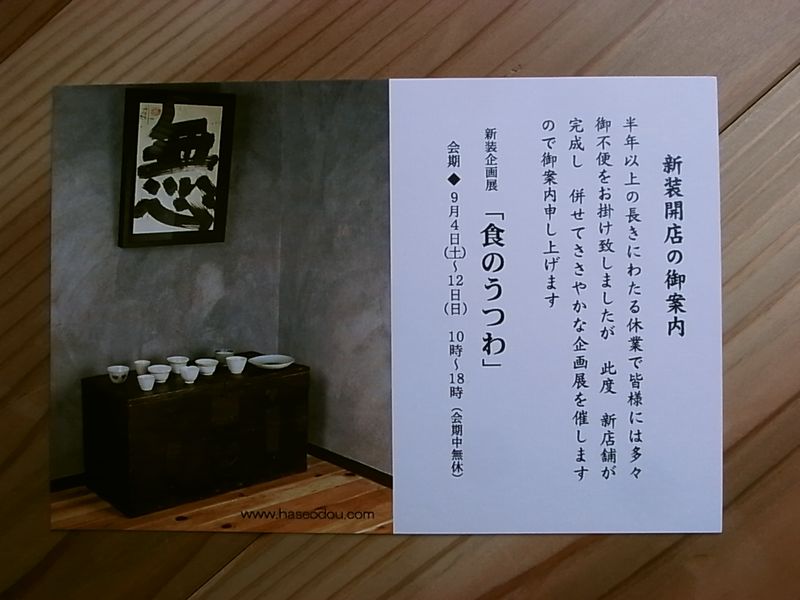 新装開店の御案内
半年以上の長きにわたる休業で皆様には多々
御不便をお掛け致しましたが 此度 新店舗が
完成し 併せてささやかな企画展を催します
ので御案内申し上げます
新装企画展 「食のうつわ」
会期◆9月4日(土)～12日(日) 10時～18時(会期中無休)
www.haseodou.com